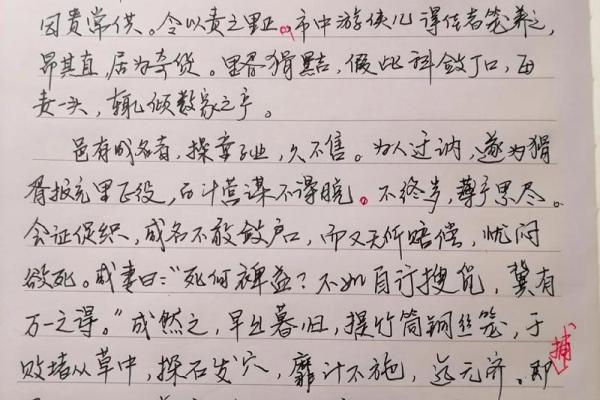 因责常供。令以责之里正。市中游侠儿得佳者笼养之,
昂其直,居为奇货。里胥猾黠,假此科敛丁口,每
责一头,辄倾数家之产。
邑有成名者,操童子业,久不售。为人迂讷,遂为猾
胥报充里正役,百计营谋不得脱。不终岁,薄产累尽。
会征促织,成名不敢敛户口,而又无所赔偿,忧闷
欲死。成妻曰:“死何裨益?不如自行搜觅,冀有
万一之得。”成然之,早出暮归,提竹筒铜丝笼,于
败堵丛草中,探石发穴,靡计不施,迄无济。即
捕